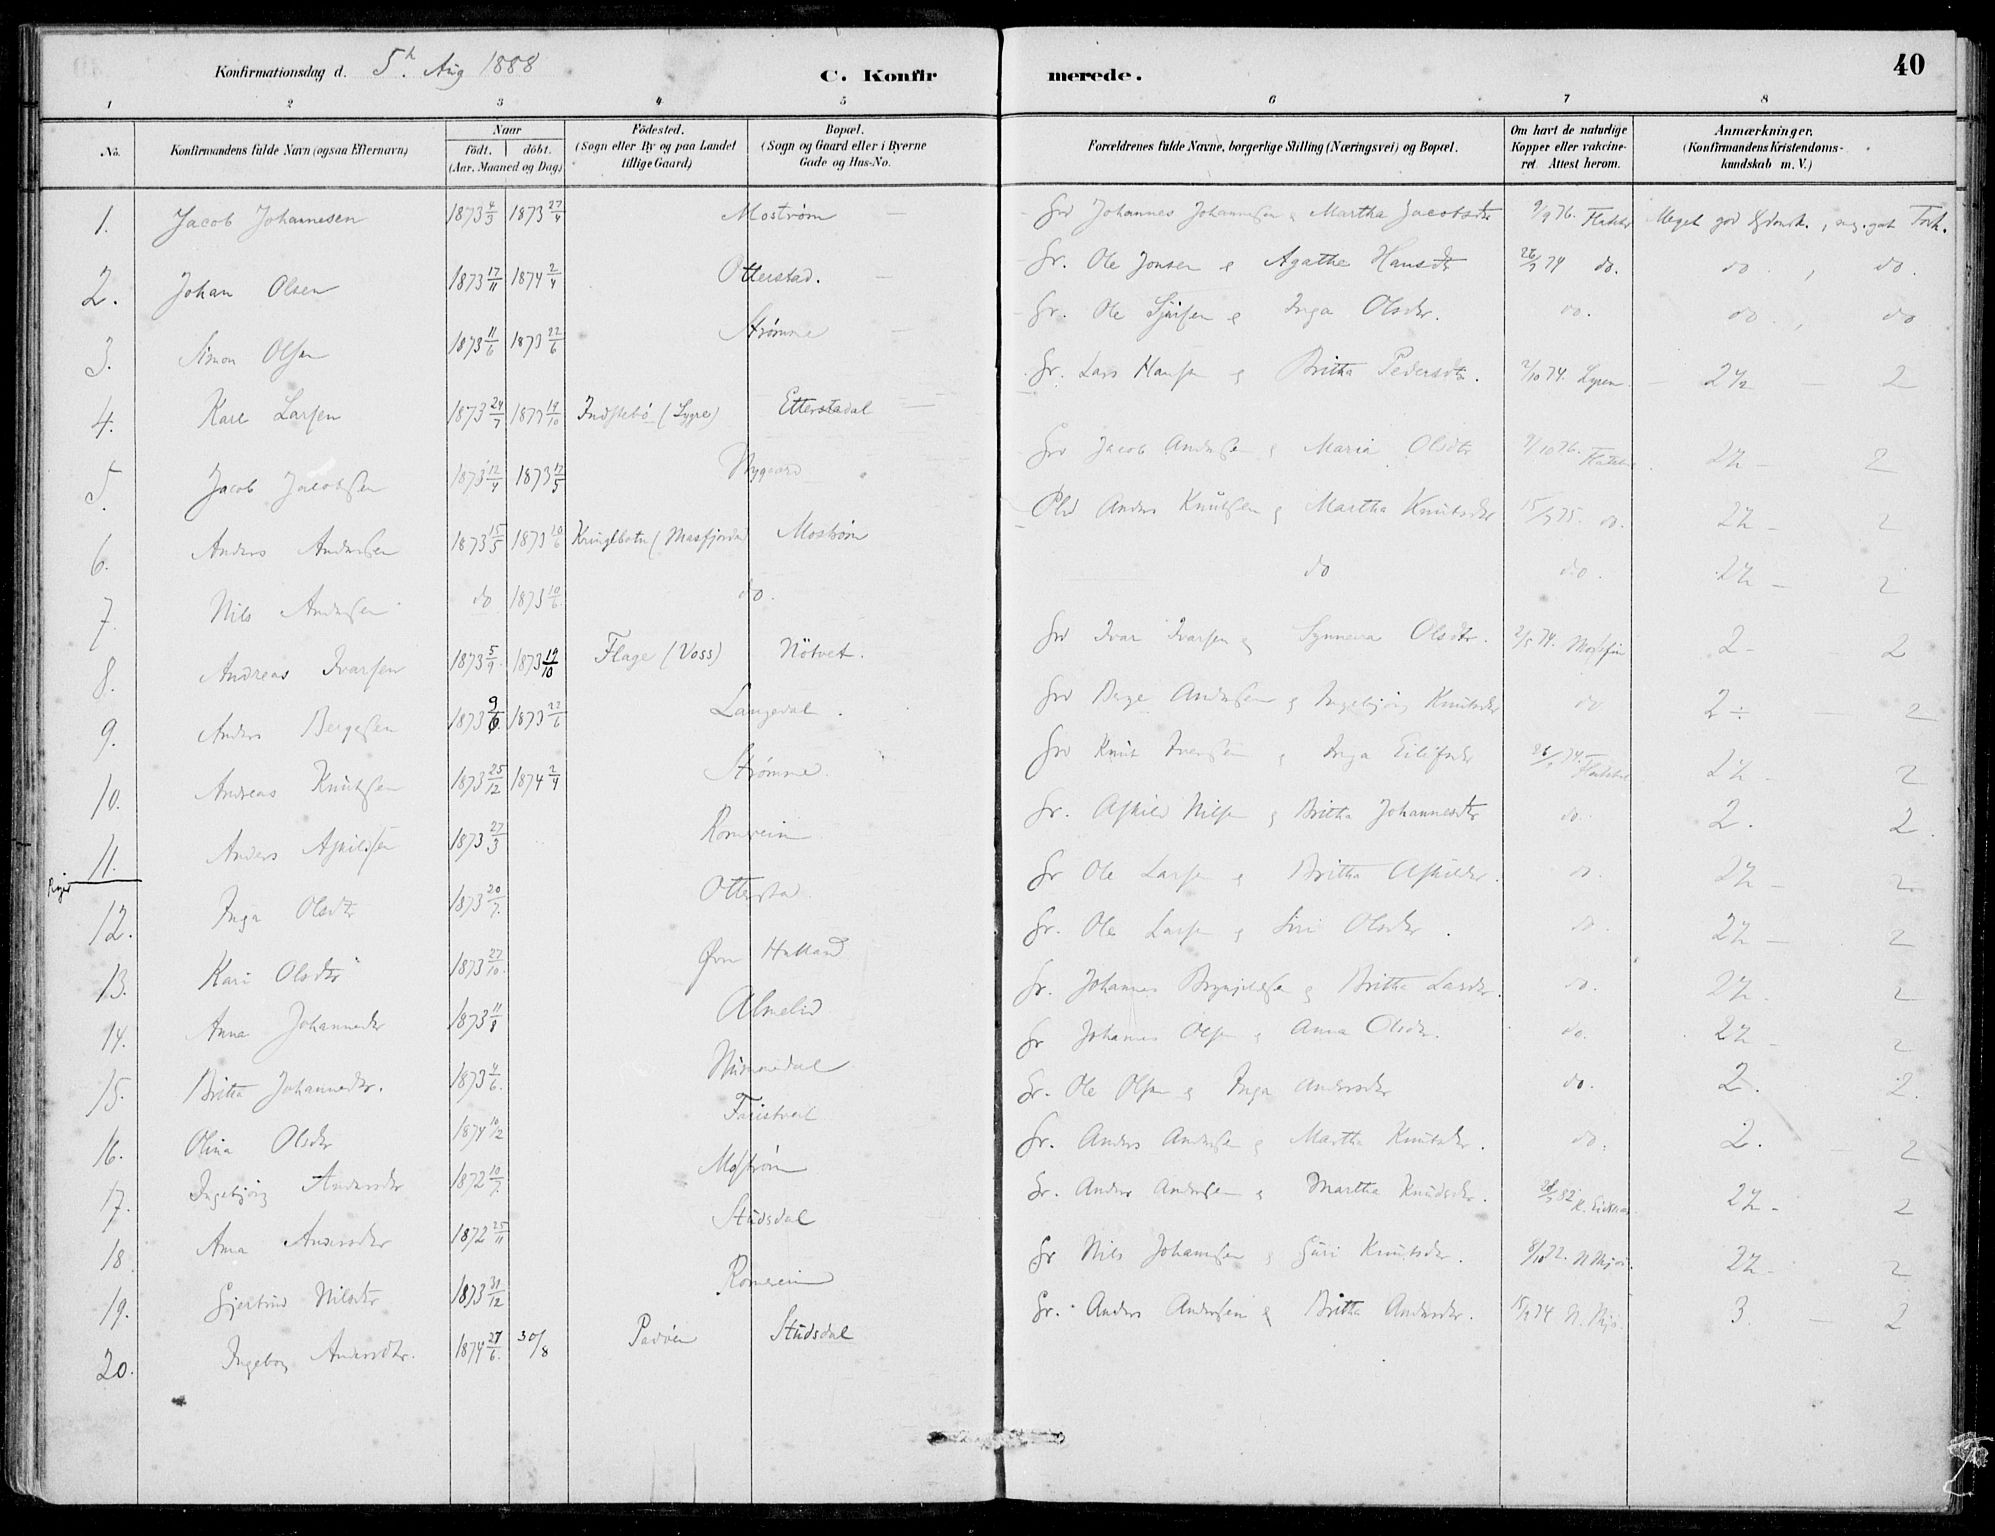 Konfirmationsdag d. 5h. Aug 1888 C. Konfirmerede. 40
1 2 3 4 5 6 7 8
No. Konfirmandens fulde Navn (ogsaa Efternavn) Naar födt. döbt. (Aar, Maaned og Dag) Födested. (Sogn eller By og paa Landet tillige Gaard) Bopæl. (Sogn og Gaard eller i Byerne Gade og Hus-No. Forældrenes fulde Navne, borgerlige Stilling (Næringsvei) og Bopæl. Om havt de naturlige Kopper eller vakcineret. Attest herom. Anmærkninger. (Konfirmandens Kristendomskundskab m. V.)
1. Jacob Johannesen 1873 4/3 1873 27/4 Mostrøm Johannes Johannessen & Martha Jacobsdtr 9/9 76. Meget god
2. Johan Olsen 1873 17/11 1874 2/4 Otterstad. Gr. Ole Jonsen & Agathe Hansdtr 26/7 74 do. do. , do.
3. Simon Olsen 1873 11/6 1873 22/6 Strømme Gr. Ole & Inga Olsdtr. do. do. , do
4. Karl Larsen 1873 24/7 1873 19/10 Indstebö (Lygre) Etterstadal Gr. Lars Hansen & Britha Pedersdtr. 2/10 74. 2½ 2
5. Jacob Jacobsen 1873 12/4 1873 12/5 Nygaard Jacob Andersen & Maria Olsdtr 9/10 76. 2½ - 2
6. Anders Andersen 1873 15/5 1873 10/6 Kringlebotn (Masfjorden) Mostrøm Anders Knutsen & Martha Knutsdtr do. 2½ - 2
7. Nils Andersen do 1873 10/6 do. do do. 2½ - 2
8. Andreas Ivarsen 1873 5/9. 1873 19/10 Flage (Voss) Nötvet. Ivar Ivarsen & Synneva Olsdtr. 2 - 2
9. Anders Bergesen 1873 9/6 1873 22/6 Langedal. Berge Andersen & Ingebjørg Knutsdtr do 2 ÷ 2
10. Andreas Knutsen 1873 25/12 1874 2/4 Strømme. Knut Iversen & Inga 2½ - 2
11. Anders Askildsen 1873 27/3 Romereim Gr. Askild Nilsen & Britha Johannesdtr do. 2. 2.
Piger
12. Inga Olsdtr 1873 20/7. Otterstad Gr Ole Larsen & Britha Askildsdtr. do. 2½ - 2
13. Kari Olsdtr 1873 27/10. Øvre Helland Gr. Ole Larsen & Siri Olsdtr. do. 2½ - 2
14. Anna Johannesdtr 1873 11/8 Almelid Gr. Johannes Brynjulvsen & Britha Larsdtr. do. 2½. 2
15. Britha Johannesdtr. 1873 4/6. Nummedal Gr Johannes Olsen & Anna Olsdtr. do. 2½ - 2
16. Olina Olsdtr 1874 10/2 Gr. Ole Olsen & Inga Andersdtr do. 2. 2.
17. Ingebjörg Andersdtr 1872 10/7. Mostrøm Gr. Anders Andersen & Martha Knutsdtr. do. 2. 2
18. Anna Andersdtr 1872 25/11 Studsdal Gr. Anders Andersen & Martha Knudsdtr. 2½ - 2
19. Gjertrud Nilsdtr 1873 31/12 Romereim Gr Nils Johannesen & Guri Knutsdtr. 2½ - 2
20. Ingeborg Andersdtr. 1874 27/6. 30/8 Padöen Studsdal Gr. Anders Andersen & Britha Andersdtr. 15/9 74 3 2